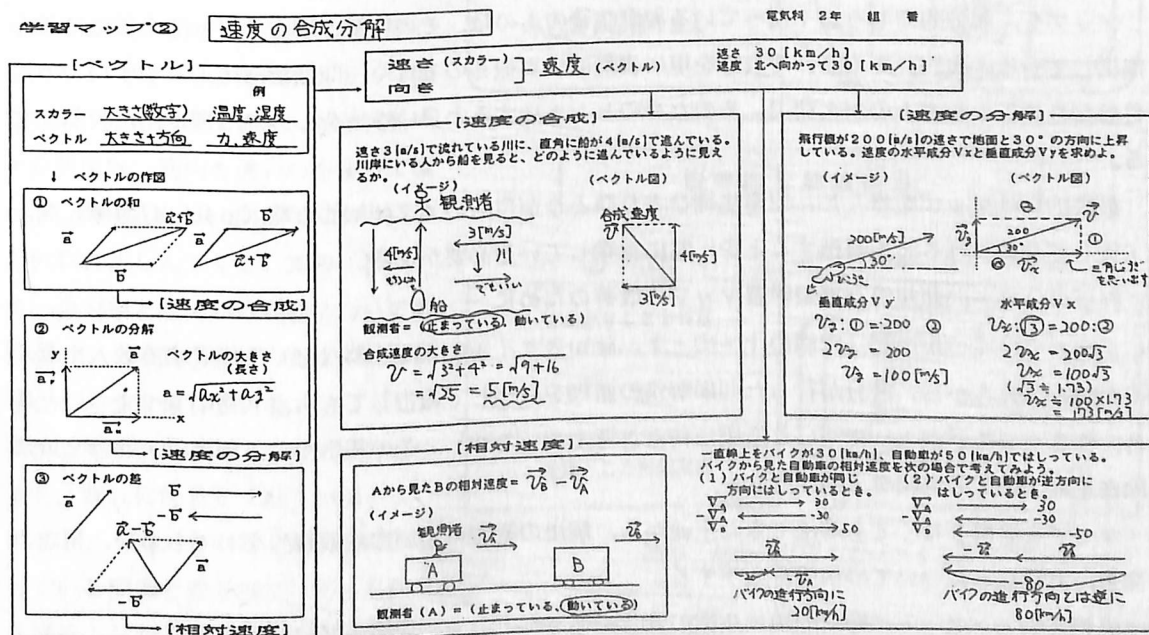 学習マップ② 速度の合成分解
電気科 2年 組 番
[ベクトル]
例
スカラー 大きさ(数字) 温度、湿度
ベクトル 大きさ+方向 力、速度
↓ ベクトルの作図
① ベクトルの和
a+b b
a a
b a+b
[速度の合成]
② ベクトルの分解
y a ベクトルの大きさ
(長さ)
a = √ax²+ay²
x
[速度の分解]
③ ベクトルの差
a b -b
a-b
a
-b
[相対速度]
速さ (スカラー)
向き
速度 (ベクトル)
速さ 30 [km/h]
速度 北へ向かって30 [km/h]
[速度の合成]
速さ3[m/s]で流れている川に、直角に船が4[m/s]で進んでいる。
川岸にいる人から船を見ると、どのように進んでいるように見え
るか。
(イメージ) (ベクトル図)
観測者
3[m/s]
川
4[m/s]
船
合成速度
v
4[m/s]
3[m/s]
観測者=(止まっている、動いている)
合成速度の大きさ
v = √3²+4² = √9+16
= √25 = 5[m/s]
[速度の分解]
飛行機が200[m/s]の速さで地面と30°の方向に上昇
している。速度の水平成分Vxと垂直成分Vyを求めよ。
(イメージ) (ベクトル図)
200[m/s]
30°
v
vy
200
30°
vx
①
三角比を
思い出す
垂直成分Vy
vy:① = 200 ②
2vy = 200
vy = 100[m/s]
水平成分Vx
vx:√3 = 200:②
2vx = 200√3
vx = 100√3
(√3≒1.73)
vx ≒ 100×1.73
= 173[m/s]
[相対速度]
Aから見たBの相対速度= vB - vA
(イメージ)
観測者 vA vB
A B
観測者(A)=(止まっている、動いている)
一直線上をバイクが30[km/h]、自動車が50[km/h]ではしっている。
バイクから見た自動車の相対速度を次の場合で考えてみよう。
(1) バイクと自動車が同じ
方向にはしっているとき。
VA 30
-VA -30
50
vB
-vA
バイクの進行方向に
20[km/h]
(2) バイクと自動車が逆方向に
はしっているとき。
VA 30
-VA -30
-50
-vA vB
-80
バイクの進行方向とは逆に
80[km/h]